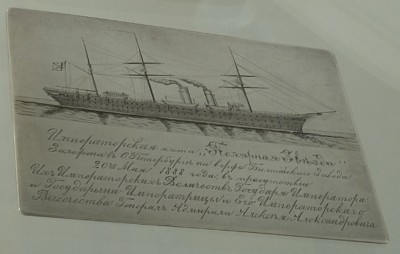 Императорская яхта „Полярная Звѣзда"
Заложена въ С Петербургѣ на верфи Балтійскаго Завода
20го Мая 1888 года; въ присутствіи
Ихъ Императорскихъ Величествъ Государя Императора
и Государыни Императрицы и Его Императорскаго
Высочества Генералъ Адмирала Алексѣя Александровича